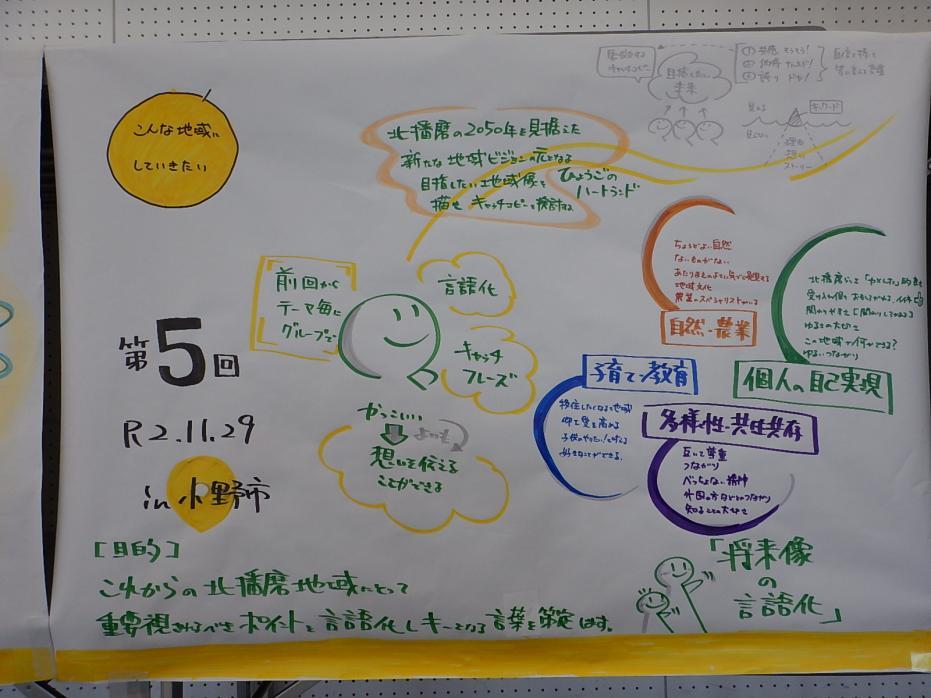 こんな地域に
していきたい
北播磨の2050年を見据えた
新たな地域ビジョンの元となる
目指したい地域像を
描き キャッチコピーを検討する
ひょうごの
ハートランド
① 共感 そうそう!
② 納得 ナルホド!
③ 誇り ドヤ!
目指したい
未来
見える
見えない
キーワード
理由
想い
ストーリー
前回から
テーマ毎に
グループで
言語化
キャッチ
フレーズ
かっこいい
よりも
想いを伝える
ことができる
第5回
R2.11.29
in 小野市
ちょうどよい自然
ないものがない
地域文化
農業のスペシャリストがいる
自然・農業
関わりやすさ
ゆるさの大切さ
この地域で何ができる?
ゆるいつながり
個人の自己実現
子育て・教育
移住したくなる地域
好きなことができる
多様性・共生共存
互いに尊重
つながり
べっちょない精神
外国の方などとのつながり
知ることの大切さ
[目的]
これからの北播磨地域にとって
重要視されるべきポイントを言語化しキーとなる言葉を策定します。
「将来像
の
言語化」